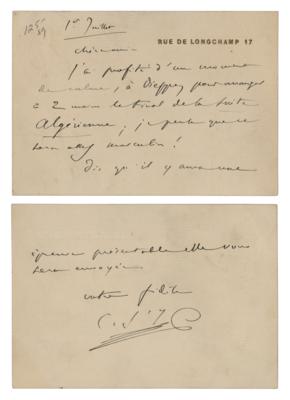 1er Juillet
RUE DE LONGCHAMP 17
cher ami
J'ai profité d'un moment
de calme, à Dieppe, pour arranger
à 2 mains le final de la Suite
Algérienne; je pense que ce
sera assez masculin!
Dès qu'il y aura une
épreuve présentable elle vous
sera envoyée.
votre fidèle
C. S^t S